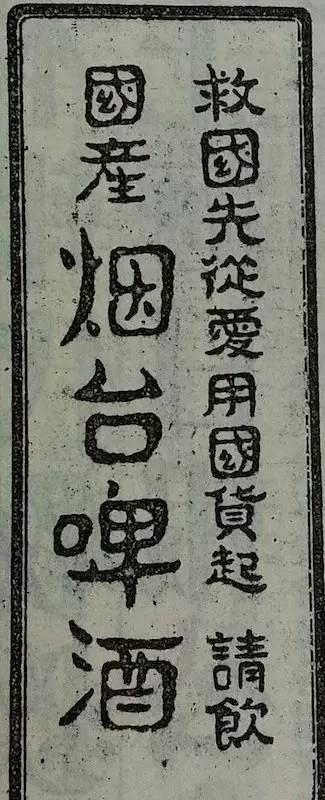 救國先從愛用國貨起 請飲
國産烟台啤酒